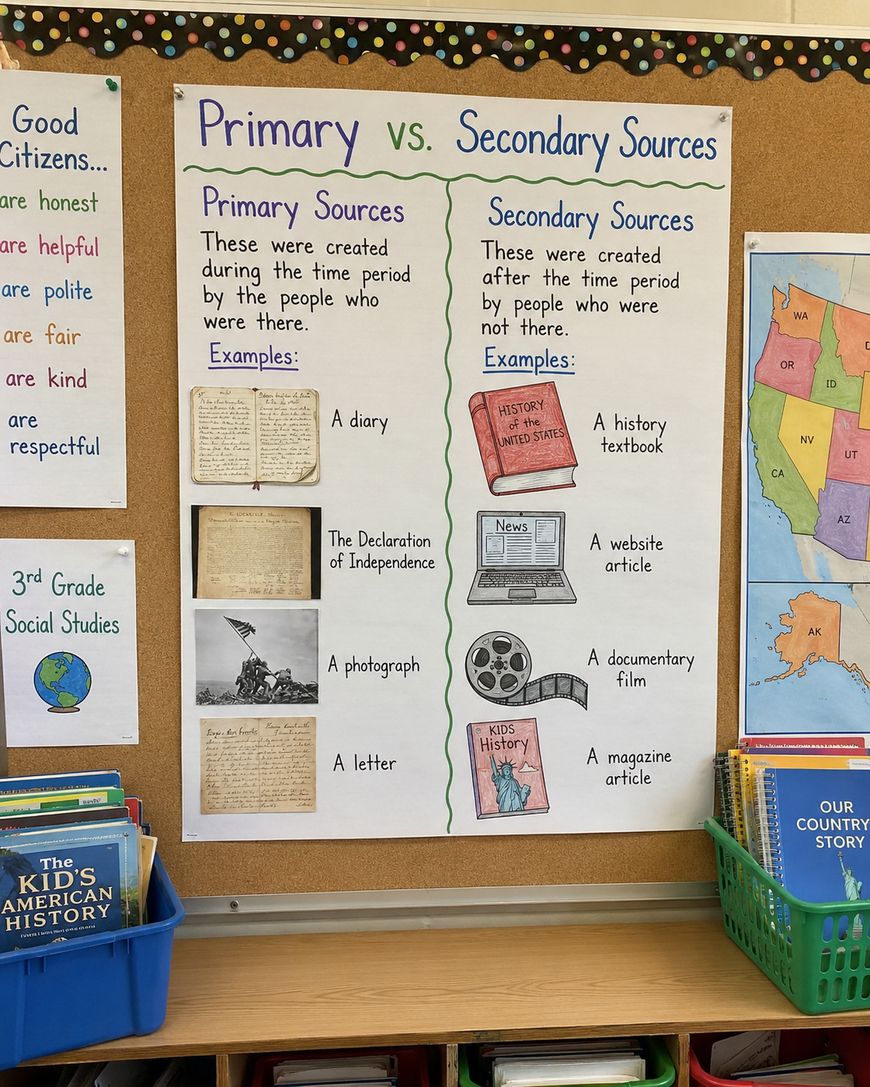 Good
Citizens...
are honest
are helpful
are polite
are fair
are kind
are
respectful
3rd Grade
Social Studies
Primary vs. Secondary Sources
Primary Sources
These were created
during the time period
by the people who
were there.
Examples:
A diary
The Declaration
of Independence
A photograph
A letter
Secondary Sources
These were created
after the time period
by people who were
not there.
Examples:
HISTORY
of the
UNITED STATES
A history
textbook
News
A website
article
A documentary
film
KIDS
History
A magazine
article
WA
OR
ID
NV
CA
UT
AZ
AK
The
KID'S
AMERICAN
HISTORY
OUR
COUNTRY
STORY